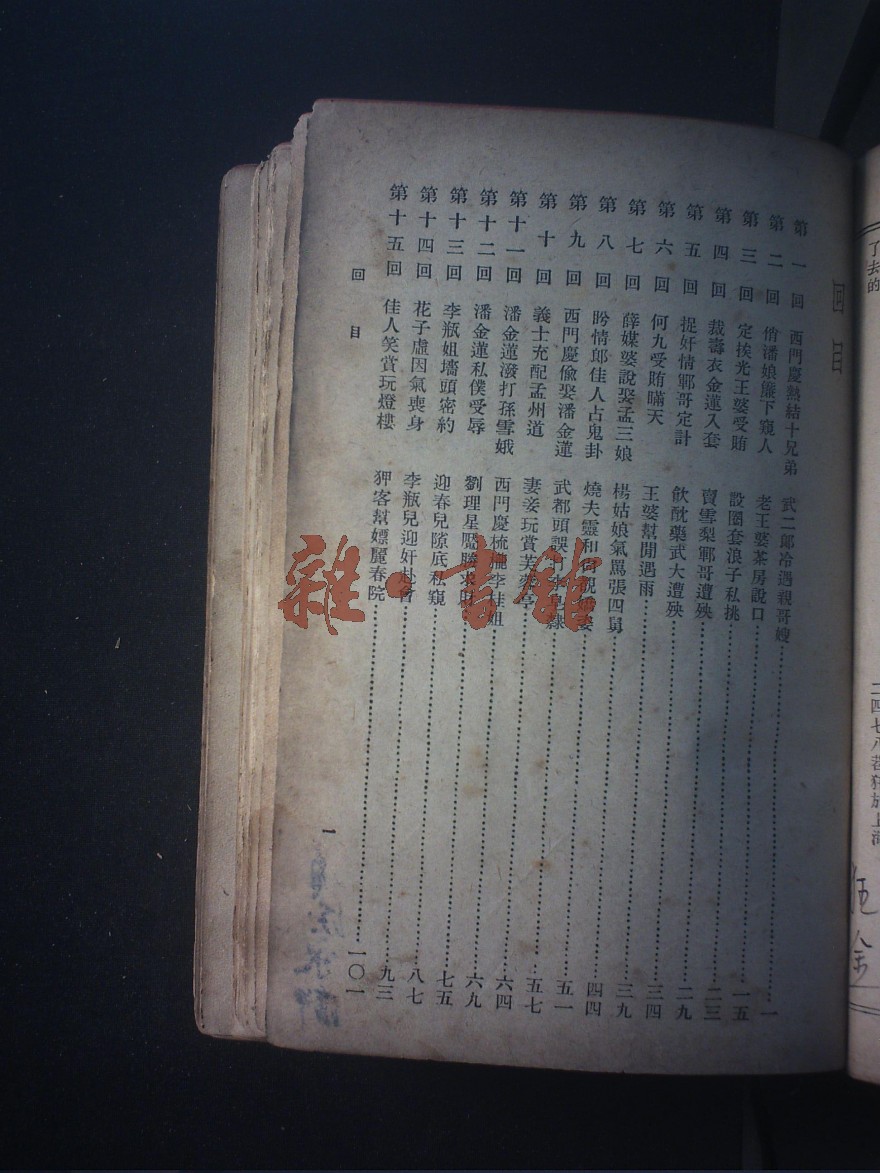 回目
第一回 西門慶熱結十兄弟 武二郎冷遇親哥嫂 一
第二回 俏潘娘簾下窺人 老王婆茶房說口 一五
第三回 定挨光王婆受賄 設圈套浪子私挑 二三
第四回 裁壽衣金蓮入套 賣雪梨鄆哥遭殃 二九
第五回 捉奸情鄆哥定計 飲酖藥武大遭殃 三四
第六回 何九受賄瞞天 王婆幫閒遇雨 三九
第七回 薛媒婆說娶孟三娘 楊姑娘氣罵張四舅 四四
第八回 盼情郎佳人占鬼卦 燒夫靈和 五一
第九回 西門慶偸娶潘金蓮 武都頭誤 五七
第十回 義士充配孟州道 妻妾玩賞芙蓉亭 六四
第十一回 潘金蓮潑打孫雪娥 西門慶梳櫳李桂姐 六九
第十二回 潘金蓮私僕受辱 劉理星 七五
第十三回 李瓶姐墻頭密約 迎春兒隙底私窺 八七
第十四回 花子虛因氣喪身 李瓶兒迎奸赴會 九三
第十五回 佳人笑賞玩燈樓 狎客幫嫖麗春院 一〇一
回目
一
雜·書館
了去的
二四七八老
上海